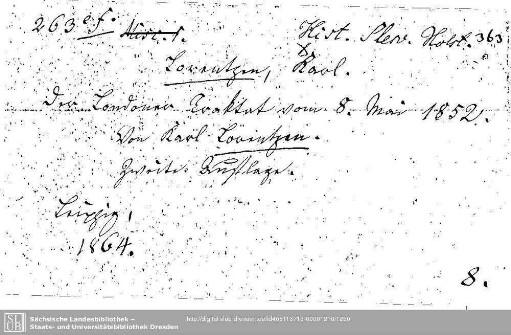 263 e f. Hist. Slew. Holst. 363
Lorentzen, Dr. Karl.
Der Londoner Traktat vom 8. Mai 1852.
Von Karl Lorentzen.
Zweite Auflage.
Leipzig,
1864.
8.
Sächsische Landesbibliothek –
Staats- und Universitätsbibliothek Dresden